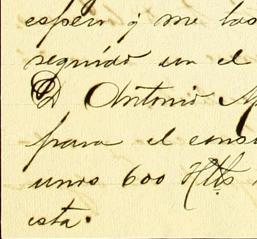 espero q me las
seguido en el
D Antonio M
para el cons
unos 600 Htls
esta.